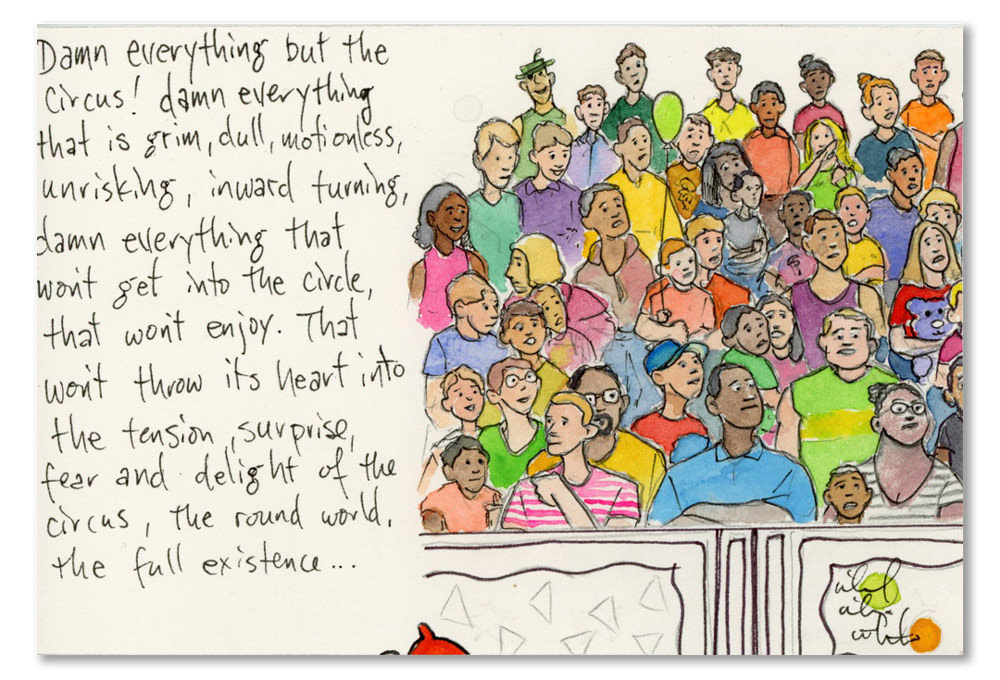 Damn everything but the
Circus! damn everything
that is grim, dull, motionless,
unrisking, inward turning,
damn everything that
won't get into the circle,
that won't enjoy. That
won't throw its heart into
the tension, surprise,
fear and delight of the
circus, the round world,
the full existence...